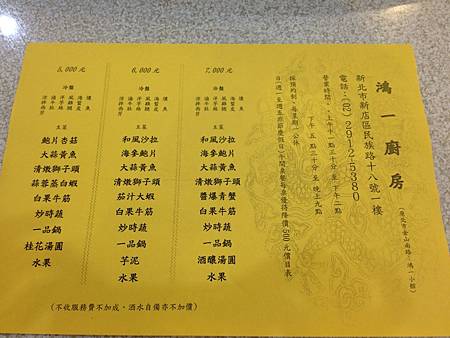 鴻一廚房
(原北市金山南路:鴻一小館)
新北市新店區民族路十八號一樓
電話:(02) 2912-5380
營業時間:上午十一點三十分至下午二點
下午五點三十分至晚上九點
採預約制:每星期一公休
7,000元
冷盤
燻魚
主菜
和風沙拉
海參鮑片
大蒜黃魚
清燉獅子頭
醬爆青蟹
白果牛筋
炒時蔬
一品鍋
酒釀湯圓
水果
6,000元
冷盤
燻魚
主菜
和風沙拉
海參鮑片
大蒜黃魚
清燉獅子頭
茄汁大蝦
白果牛筋
炒時蔬
一品鍋
芋泥
水果
5,000元
冷盤
燻魚
主菜
鮑片杏菇
大蒜黃魚
清燉獅子頭
蒜蓉蒸白蝦
白果牛筋
炒時蔬
一品鍋
桂花湯圓
水果
(不收服務費不加成,酒水自備亦不加價)